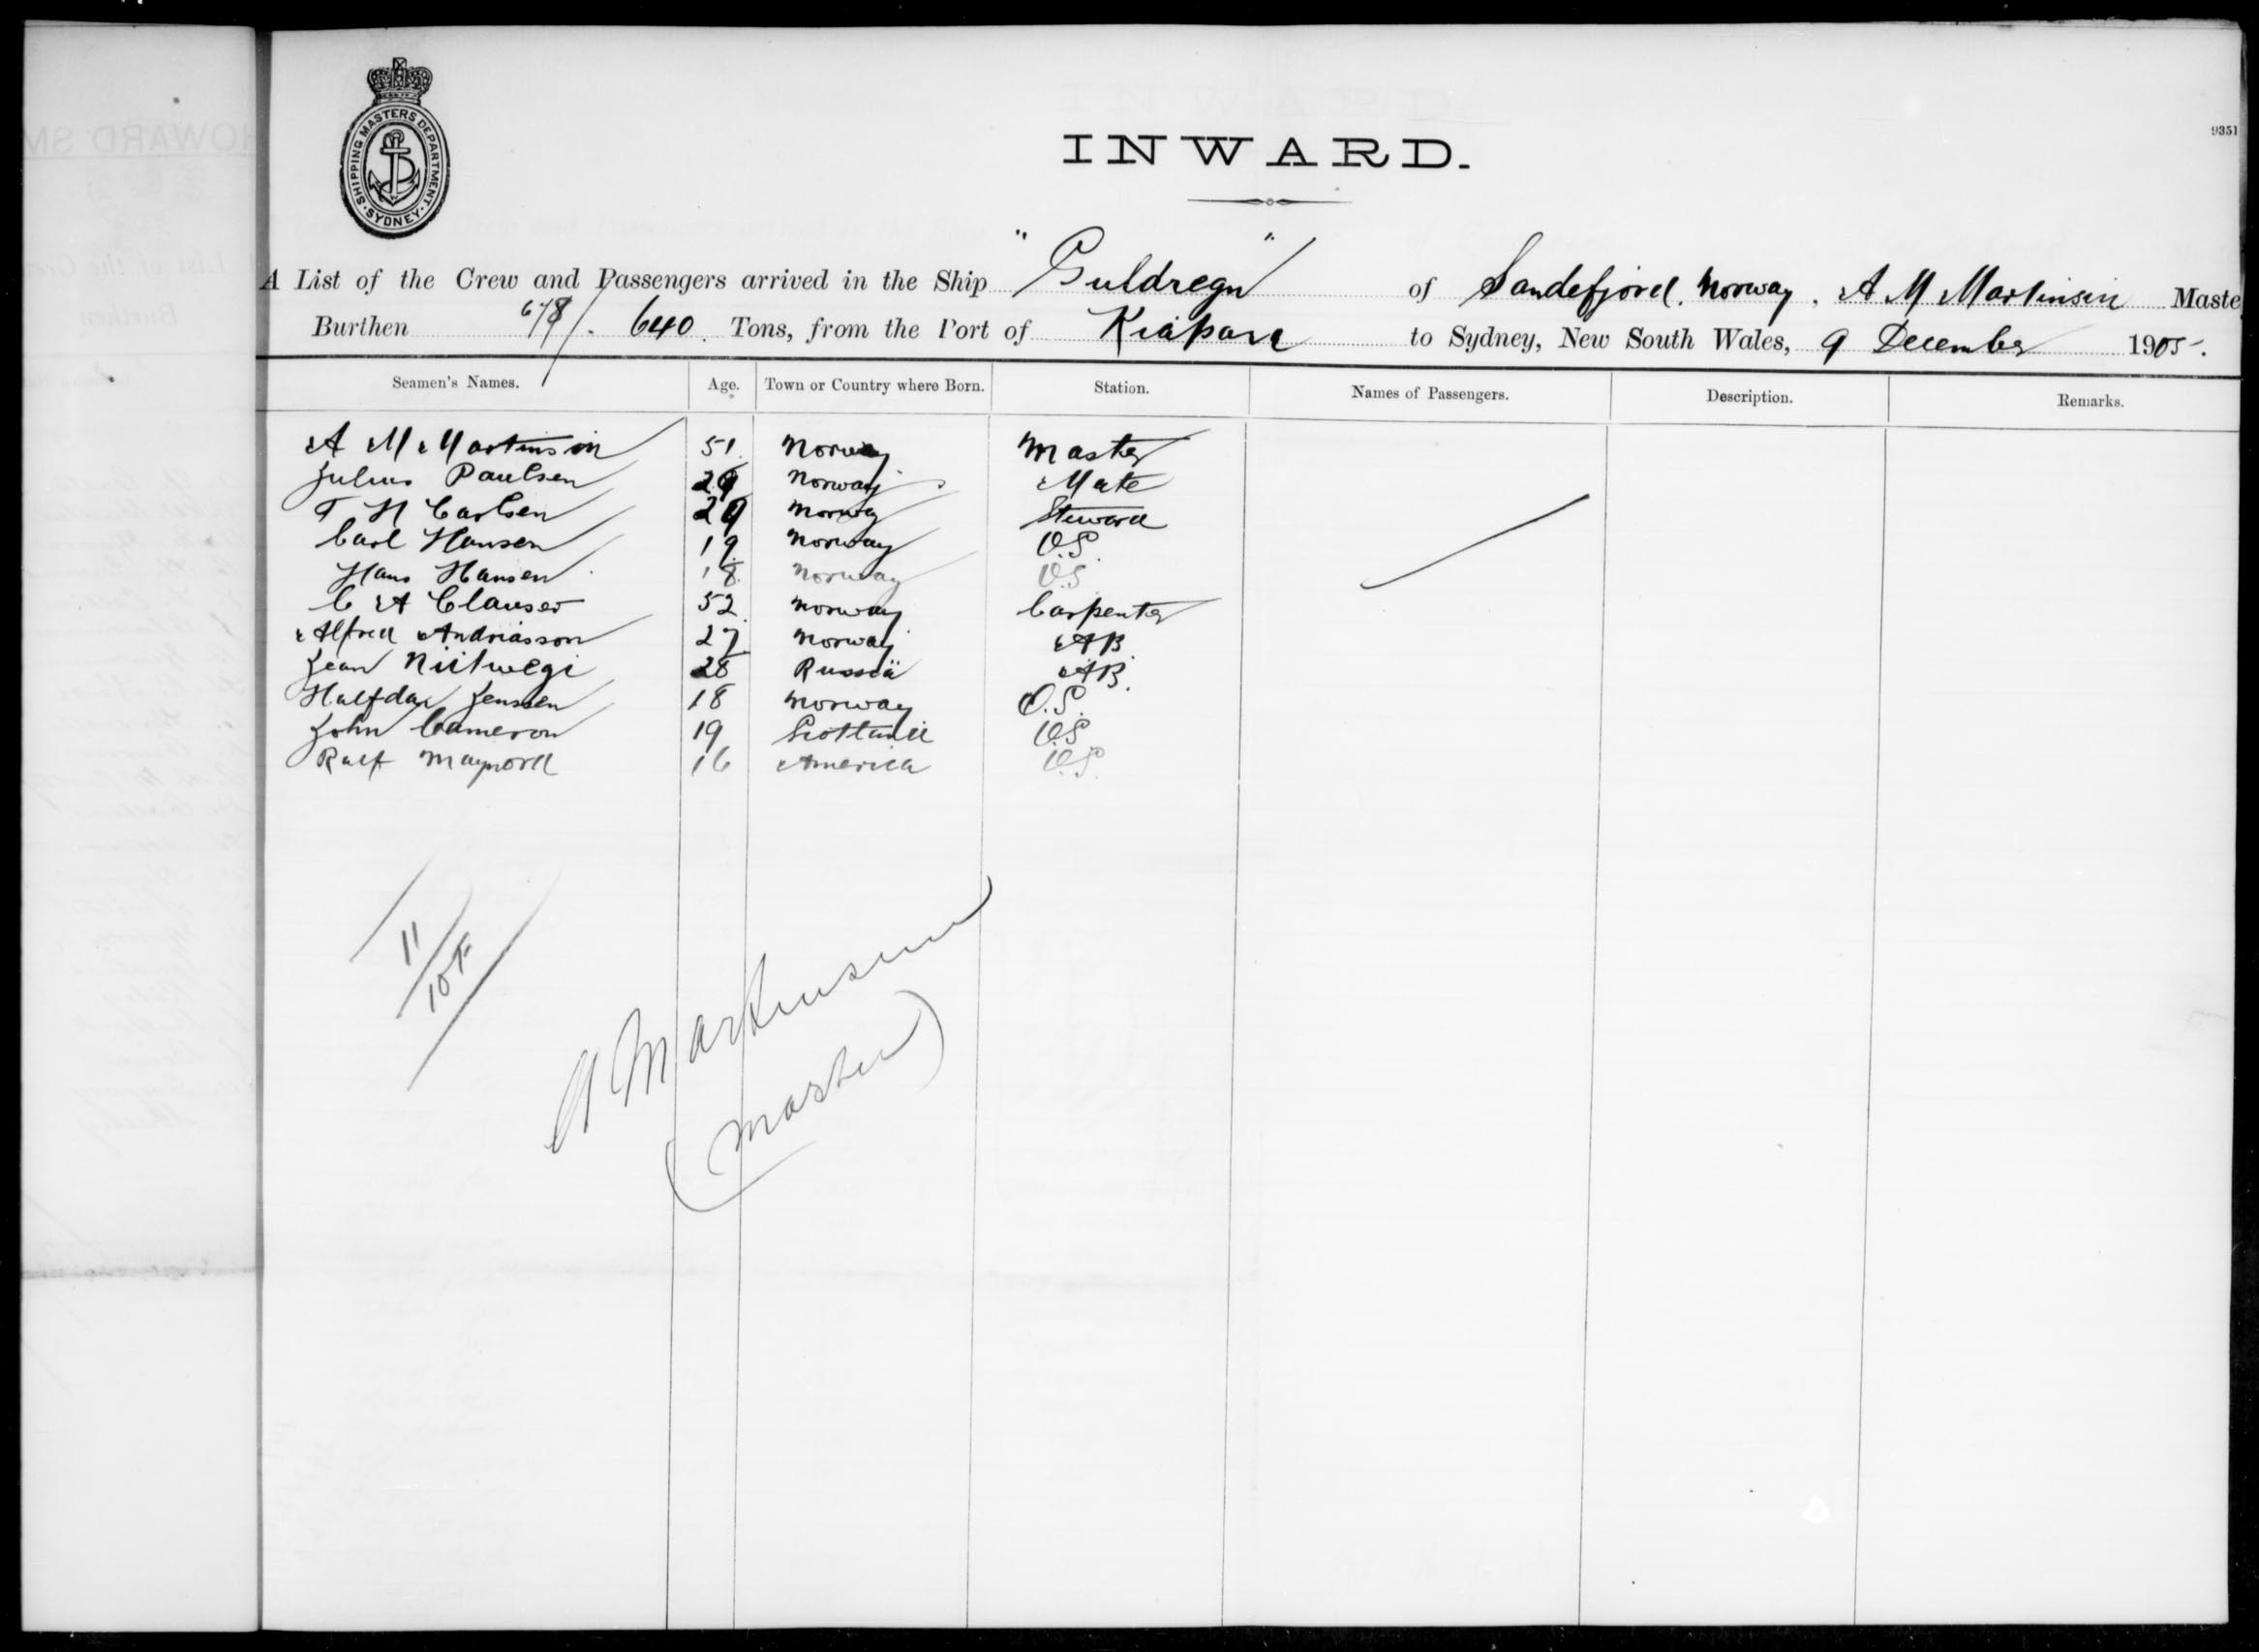 SHIPPING MASTERS DEPARTMENT. SYDNEY
9351
INWARD.
A List of the Crew and Passengers arrived in the Ship "Guldregn" of Sandefjord, Norway, A M Martinsin Maste
Burthen 678/. 640 Tons, from the Port of Kiapara to Sydney, New South Wales, 9 December 1905.
Seamen's Names. Age. Town or Country where Born. Station. Names of Passengers. Description. Remarks.
A M Martinsin 51 Norway Master
Julius Paulsen 29 Norway Mate
T H Carlsen 29 Norway Steward
Carl Hansen 19 Norway O.S.
Hans Hansen 18 Norway O.S.
C A Clausen 52 Norway Carpenter
Alfred Andriasson 27 Norway AB
Jean Niitwegi 28 Russia AB
Halfdan Jenssen 18 Norway O.S.
John Cameron 19 Scotland O.S.
Ralf Maynord 16 America O.S.
11
10 F
A Martinsen
(Master)